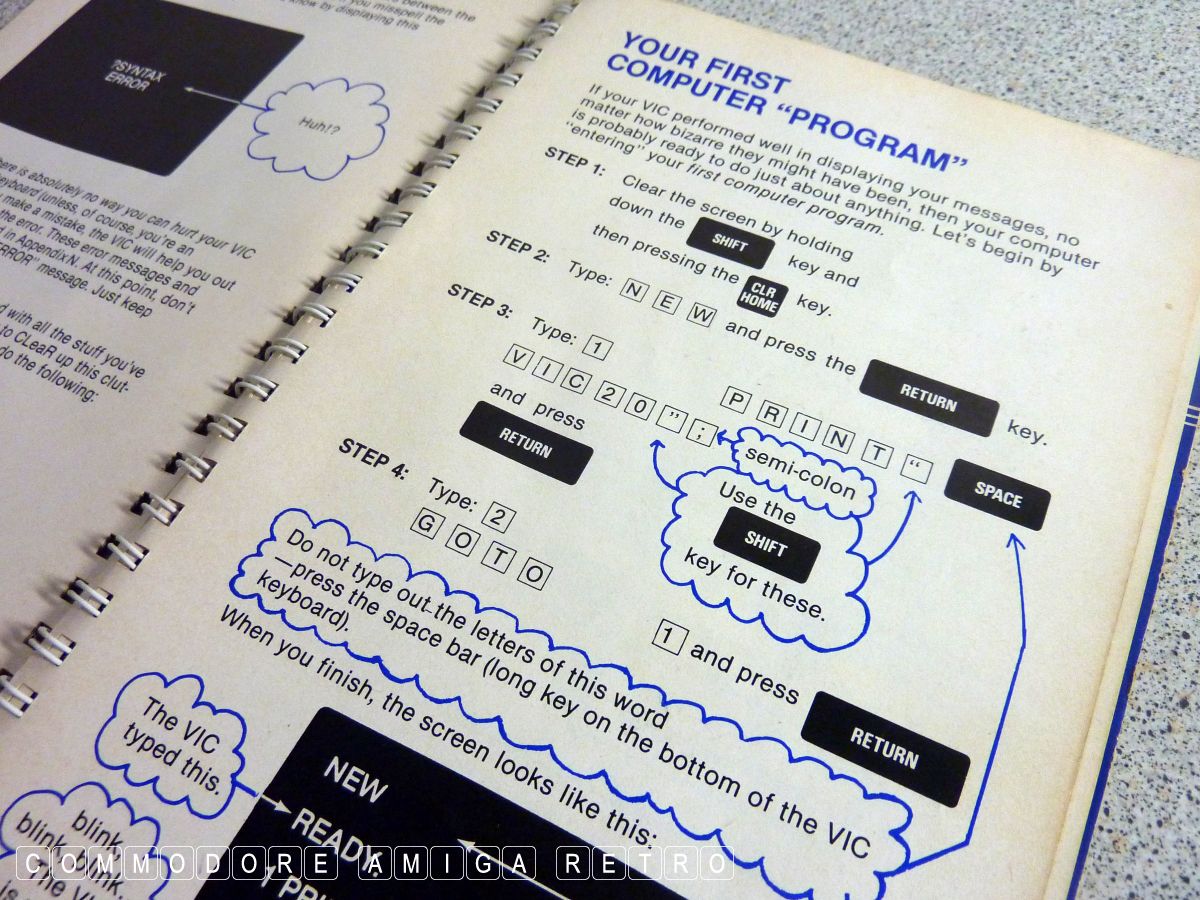 between the
you misspell the
know by displaying this
?SYNTAX
ERROR
Huh!?
here is absolutely no way you can hurt your VIC
keyboard (unless, of course, you're an
make a mistake, the VIC will help you out
the error. These error messages and
d in Appendix N. At this point, don't
ERROR" message. Just keep
d with all the stuff you've
to CLeaR up this clut-
do the following:
YOUR FIRST
COMPUTER “PROGRAM”
If your VIC performed well in displaying your messages, no
matter how bizarre they might have been, then your computer
is probably ready to do just about anything. Let's begin by
“entering” your first computer program.
STEP 1: Clear the screen by holding
down the SHIFT key and
then pressing the CLR HOME key.
STEP 2: Type: N E W and press the RETURN key.
STEP 3: Type: 1 P R I N T “ SPACE
V I C 2 0 ” ;
semi-colon
and press
RETURN
Use the
SHIFT
key for these.
STEP 4: Type: 2
G O T O 1 and press RETURN
Do not type out the letters of this word
—press the space bar (long key on the bottom of the VIC
keyboard).
When you finish, the screen looks like this:
The VIC
typed this.
NEW
READY.
1 PRI
blink,
blink, blink.
The VI
is
COMMODORE AMIGA RETRO